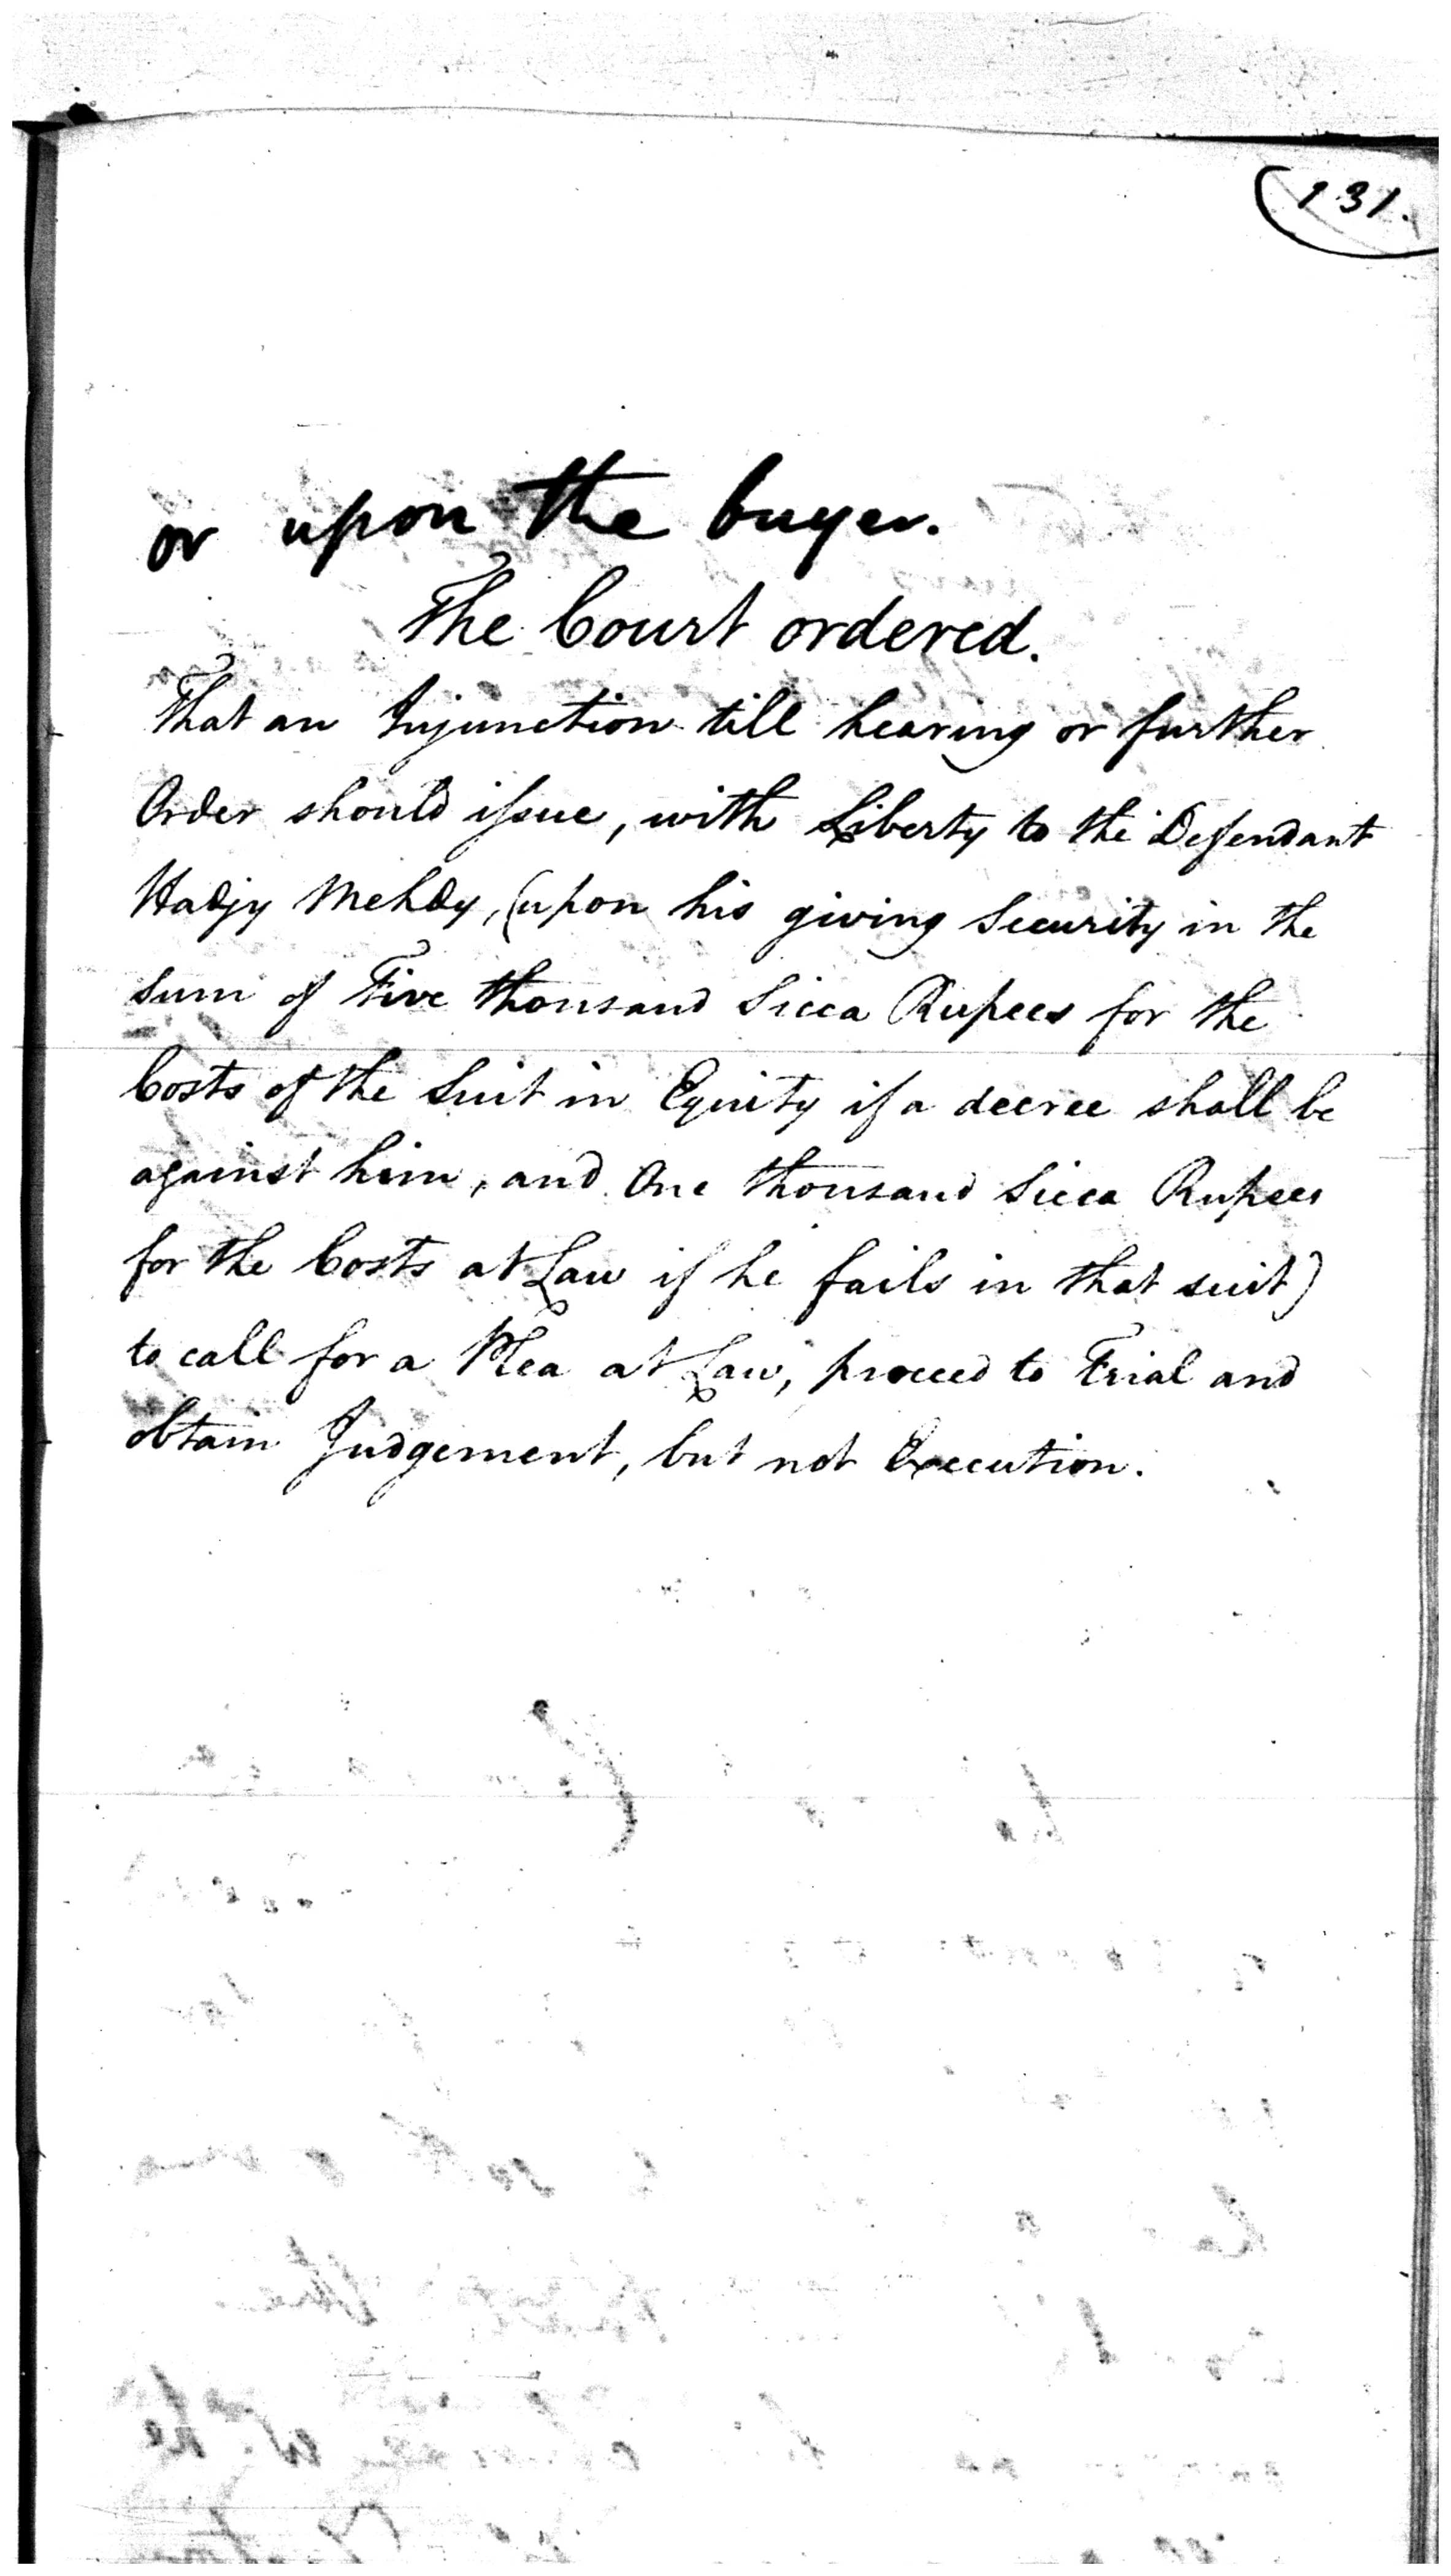 131.
or upon the buyer.
The Court ordered.
That an Injunction till hearing or further
Order should issue, with Liberty to the Defendant
Hadjy Mehdy, (upon his giving Security in the
Sum of Five thousand Sicca Rupees for the
Costs of the Suit in Equity if a decree shall be
against him, and One thousand Sicca Rupees
for the Costs at Law if he fails in that suit)
to call for a Plea at Law, proceed to Trial and
obtain Judgement, but not Execution.